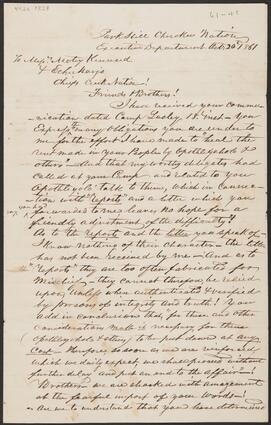 4026.7328
61-41
Park Hill Cherokee Nation
Executive Department Oct. 20th 1861
To Messrs Motey Kennard
& Echo Harjo
Chiefs Creek Nation!
Friends & Brothers!
I have received your Commu-
nication dated Camp 18. Inst— You
Express many obligations you are under to
me for the effort I have made to heal the
made in your Nation by Opothleyoholo &
others!— And that my worthy delegates had
called at your Camp and related to you
Opothleyoholo's talk to them, which in Connec-
tion with "reports" and a letter which you
forwarded to me leave no hope for a
friendly adjustment of the difficulty!
As to the reports and the letter you speak of—
I know nothing of their Character— the letter
has not been received by me— And as to
"reports" they are too often fabricated for
Mischief— they cannot therefore be relied
upon, unless when authenticated & verified
by persons of integrity and truth! You
add in conclusion that, "for these and other
consideration make it necessary for those
(Opothleyoholo & others) to be put down at any
Cost— Therefore as soon as we are reinforced
which we daily expect, we shall proceed without
further delay and put an end to the affair"!
Brothers we are shocked with amazement
at the fearful import of your Words!—
Are we to understand that you have determined